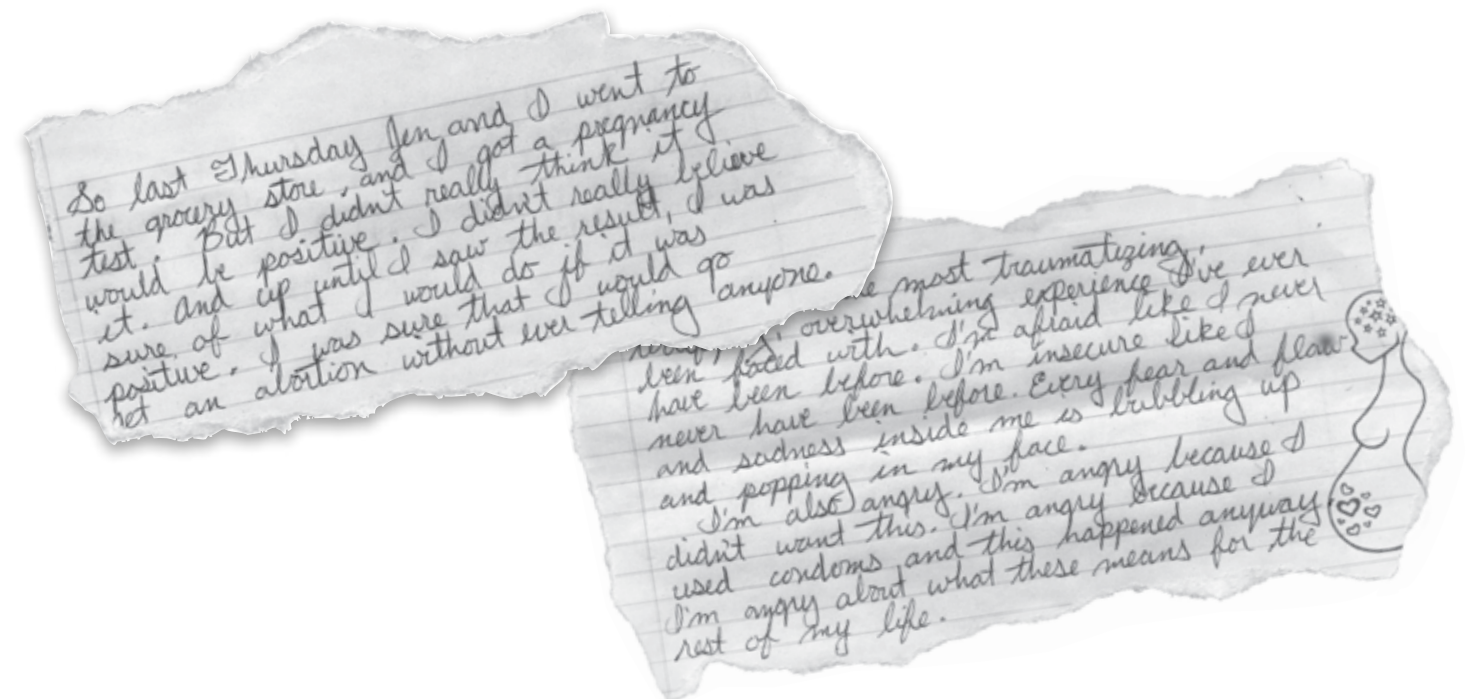 So last Thursday Jen and I went to
the grocery store, and I got a pregnancy
test. But I didn't really think it
would be positive. I didn't really believe
it. And up until I saw the result, I was
sure of what I would do if it was
positive. I was sure that I would go
get an abortion without ever telling anyone.
most traumatizing,
overwhelming experience I've ever
been faced with. I'm afraid like I never
have been before. I'm insecure like I
never have been before. Every fear and flaw
and sadness inside me is bubbling up
and popping in my face.
I'm also angry. I'm angry because I
didn't want this. I'm angry because I
used condoms and this happened anyway
I'm angry about what these means for the
rest of my life.